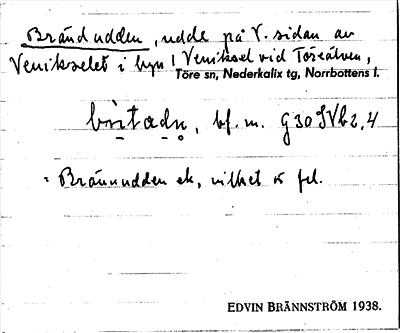 Brändudden, udde på V. sidan av
Venikselet i byn Veniksel vid Töreälven,
Töre sn, Nederkalix tg, Norrbottens l.
bf. m. G30SVb2,4
= Brännudden ek, vilket är fel.
EDVIN BRÄNNSTRÖM 1938.